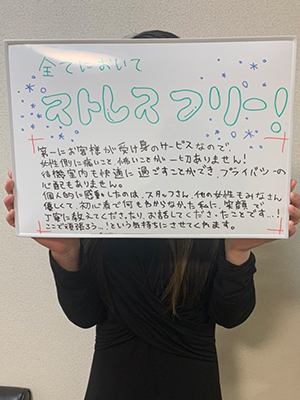 全てにおいて
ストレスフリー!
第一にお客様が受け身のサービスなので、
女性側に痛いこと、怖いことが一切ありません!
待機室内も快適に過ごすことができ、プライバシーの
心配もありません。
個人的に感動したのは、スタッフさん、他の女性もみなさん
優しくて、初心者で何もわからなかった私に、笑顔で
丁寧に教えてくださったり、お話してくださったことです…!
ここで頑張ろう…!という気持ちにさせてくれます。